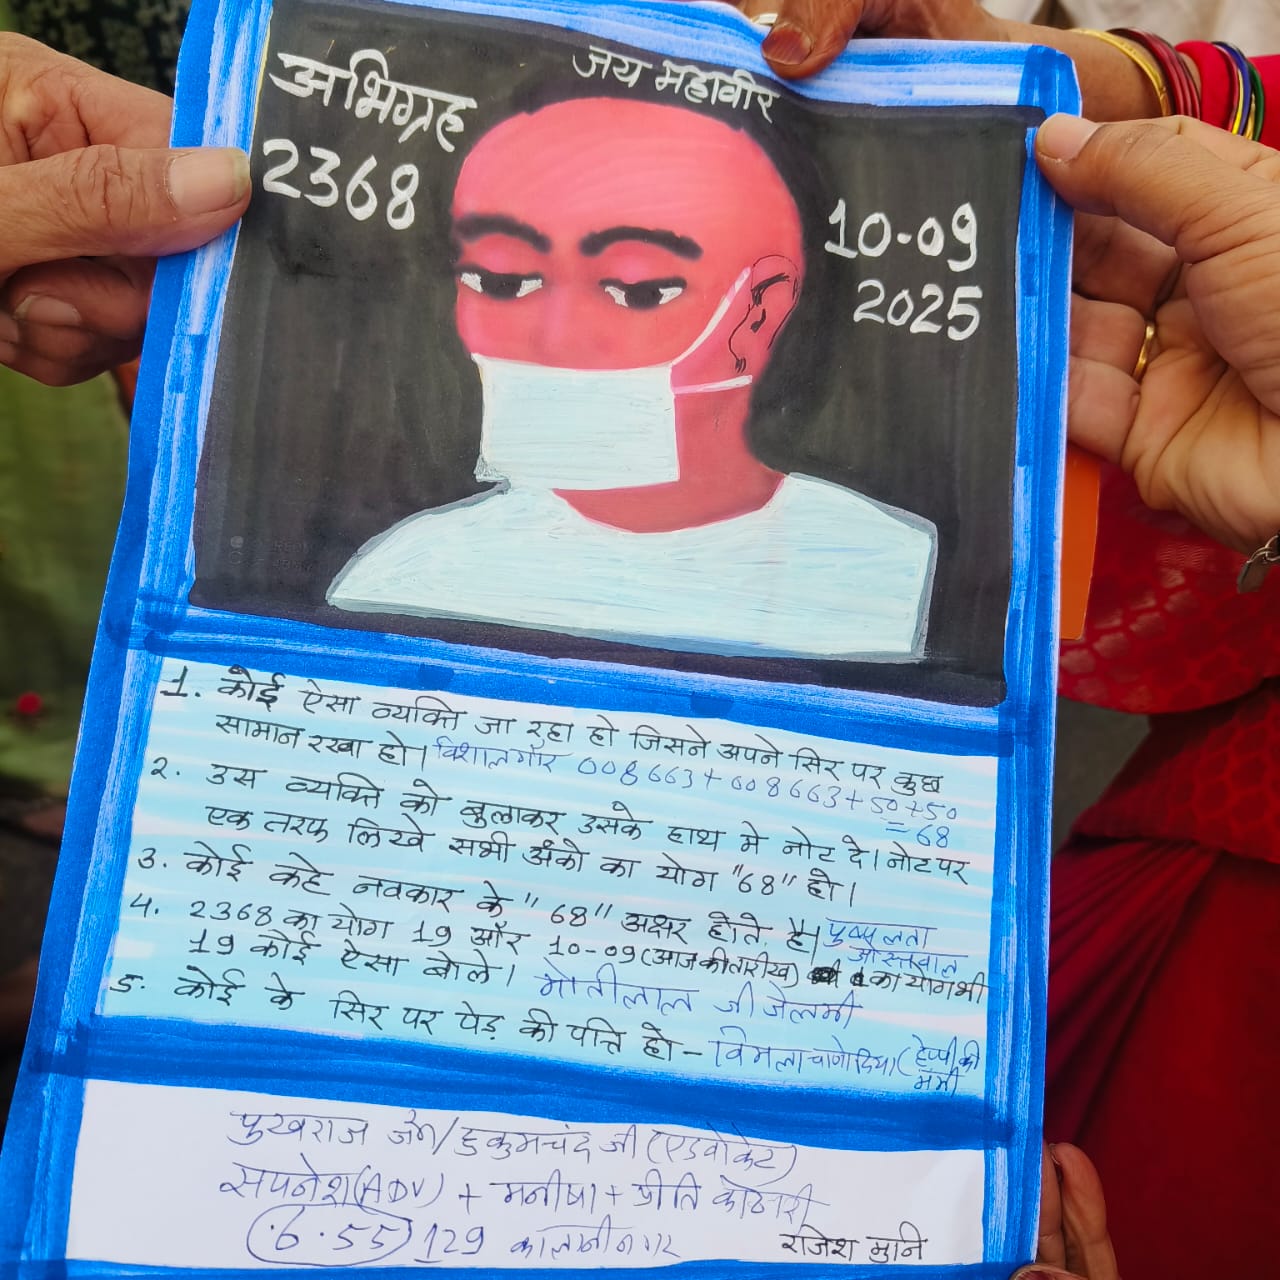 जय महावीर
अभिग्रह
2368
10-09
2025
1. कोई ऐसा व्यक्ति जा रहा हो जिसने अपने सिर पर कुछ
सामान रखा हो। विशाल गौर 008663+008663+50+50
=68
2. उस व्यक्ति को बुलाकर उसके हाथ मे नोट दे। नोट पर
एक तरफ लिखे सभी अंको का योग "68" हो।
3. कोई कहे नवकार के "68" अक्षर होते है। पुष्पलता
ओस्तवाल
4. 2368 का योग 19 और 10-09 (आज की तारीख) का योग भी
19 कोई ऐसा बोले। मोतीलाल जी जेलमी
5. कोई के सिर पर पेड़ की पत्ति हो - विमला चाणोदिया (हेप्पी की
मम्मी
पुखराज जैन/हुकुमचंद जी (एडवोकेट)
सपनेश (ADV) + मनीषा + प्रीति कोठारी
6.55 129 कालानी नगर
राजेश मुनि